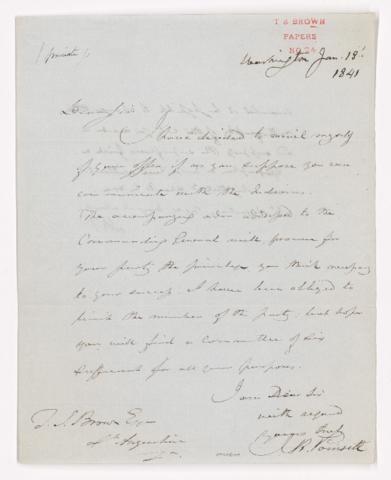 T S BROWN
PAPERS
No 24
(private)
Washington Jan. 13
1841
Dear Sir
I have decided to avail myself
of your offer if as you suppose you can
communicate with the Indians.
The accompanying order addressed to the
Commanding General will procure for
your party the privileges you think necessary
to your success. I have been obliged to
limit the number of the party, but hope
you will find a Committee of six
sufficient for all your purposes.
I am Dear Sir
with regard
yours truly
J. R. Poinsett
T. S. Brown Esq
St. Augustine
over